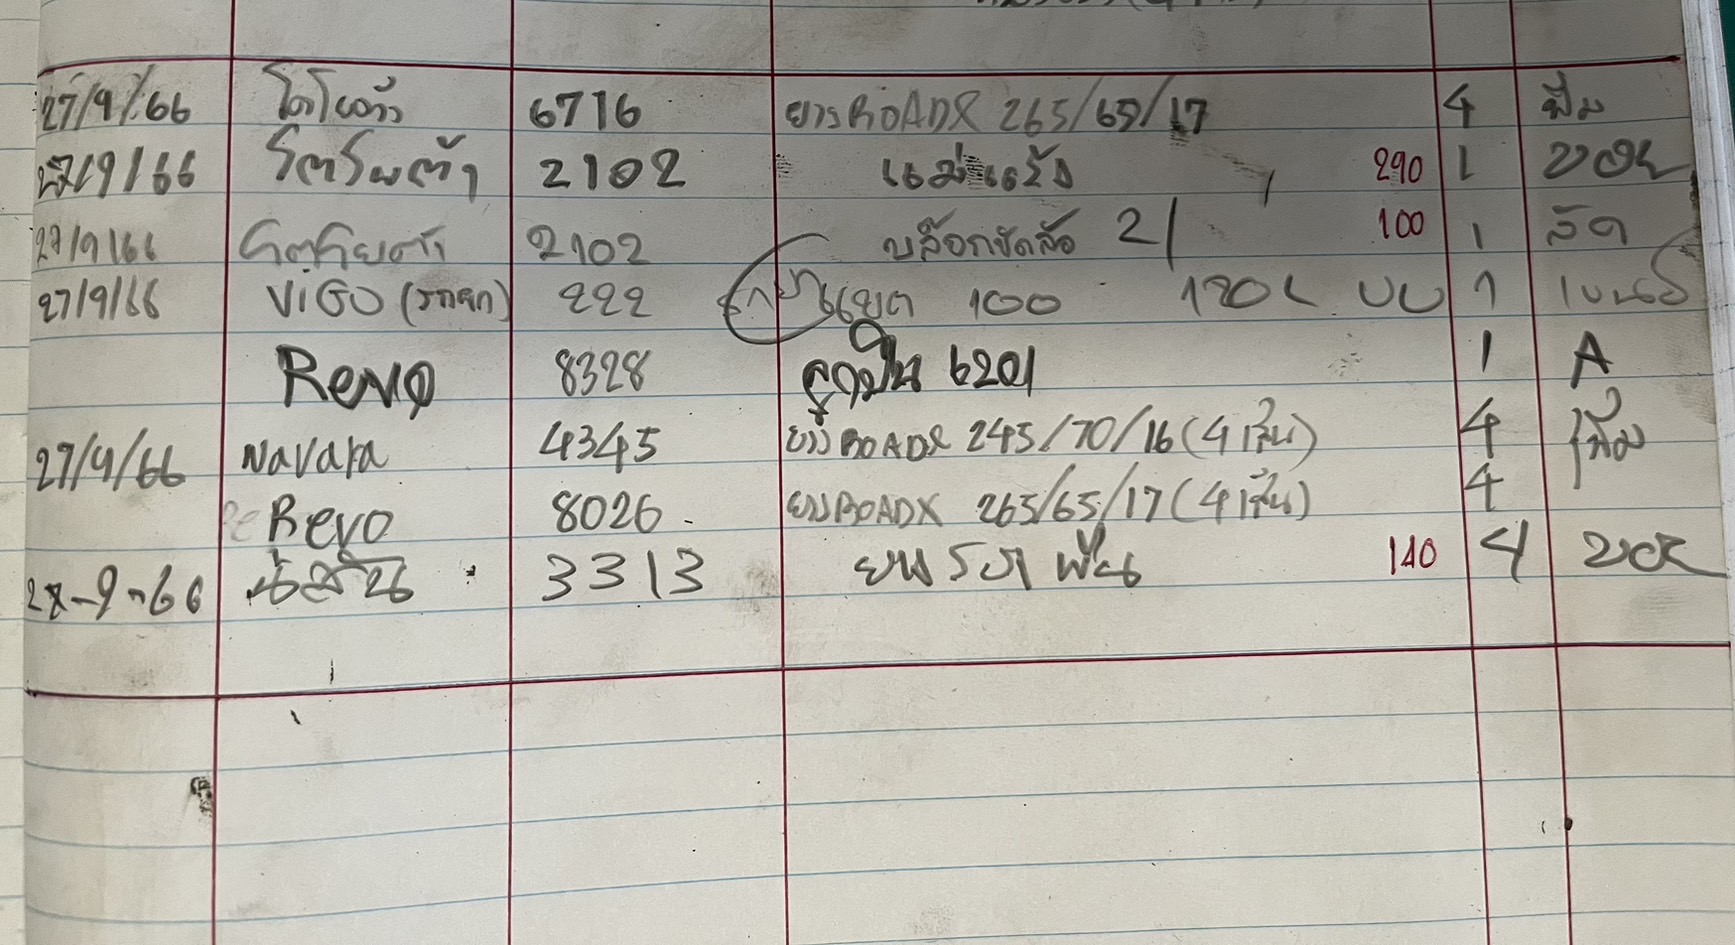 27/9/66 โตโยต้า 6716 ยางROADX 265/65/17 4 ฟิม
27/9/66 โตโยต้า 2102 แม่แรง 290 1
27/9/66 โตโยต้า 2102 บล๊อกขัดล้อ 21 100 1
27/9/66 ViGO (รถลาก) 222 100 120L 1
Revo 8328 ลูกปืน 6201 1 A
27/9/66 Navara 4345 ยางROADX 245/70/16 (4 เส้น) 4 ฟิม
Revo 8026 ยางROADX 265/65/17 (4 เส้น) 4
28-9-66 3313 140 4